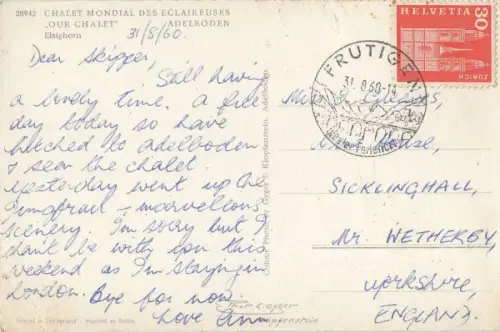 28942 CHALET MONDIAL DES ECLAIREUSES
"OUR CHALET" ADELBODEN
Elsighorn
31/8/60.
Dear Skipper,
Still having
a lovely time. A free
day today so have
hitched to Adelboden
& seen the chalet.
Yesterday went up the
Jungfrau - marvellous
scenery. I'm sorry but I
shan't be with you this
weekend as I'm staying in
London. Bye for now
Love Ann
HELVETIA
30
ZÜRICH
FRUTIGEN
31.8.60-14
SICKLINGHALL,
Nr. WETHERBY,
Yorkshire,
ENGLAND.
Klopfenstein